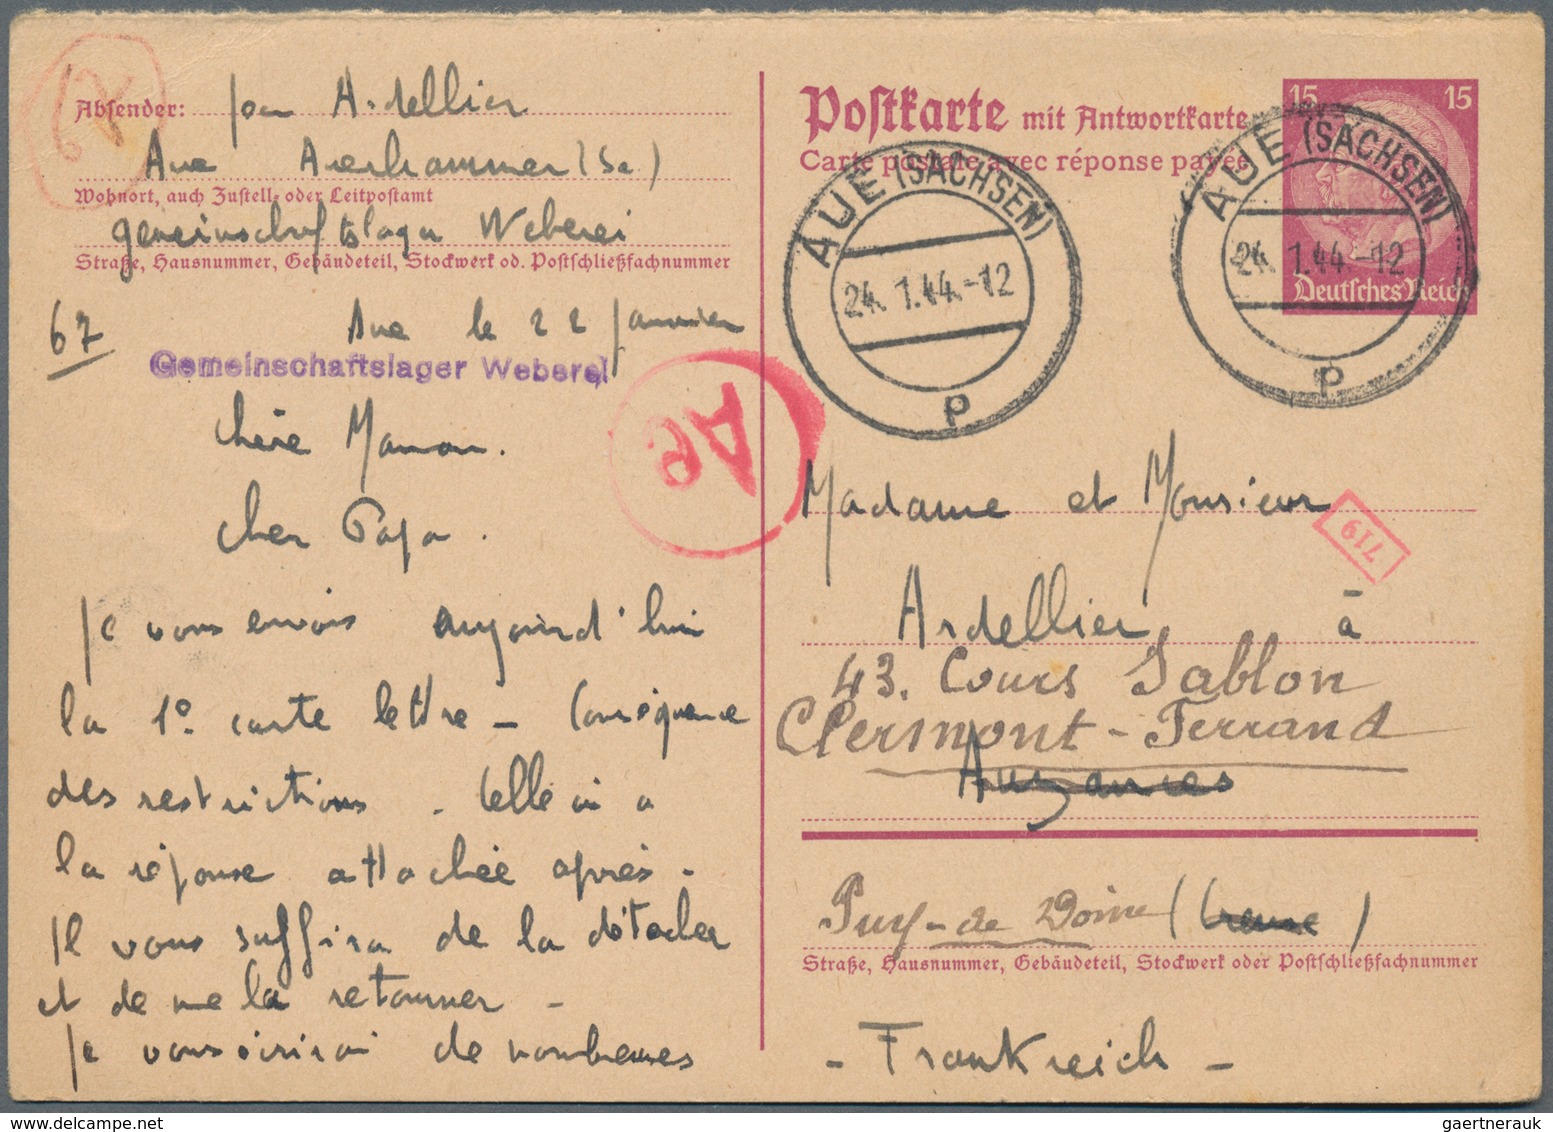 Absender: Jean Ardellier
Aue Auerhammer (Sa)
Wohnort, auch Zustell- oder Leitpostamt
Gemeinschaftslager Weberei
Straße, Hausnummer, Gebäudeteil, Stockwerk od. Postschließfachnummer
67
Aue le 22 Janvier
Gemeinschaftslager Weberei
Chère Maman.
Cher Papa.
Je vous envois aujourd'hui
la 1º carte lettre - Conséquence
des restrictions - Celle ci a
la réponse attachée après -
Il vous suffira de la détacher
et de me la retourner -
Je vous écrirai de nombreuses
Ae
Postkarte mit Antwortkarte
Carte postale avec réponse payée
15 15
Deutsches Reich
AUE (SACHSEN)
24.1.44.-12
p
AUE (SACHSEN)
24.1.44.-12
p
Madame et Monsieur
719
Ardellier à
43. Cours Sablon
Clermont-Ferrand
Auzances
Puy-de Dôme (Creuse)
Straße, Hausnummer, Gebäudeteil, Stockwerk oder Postschließfachnummer
- Frankreich -
gaertnerauk @ delcampe.net